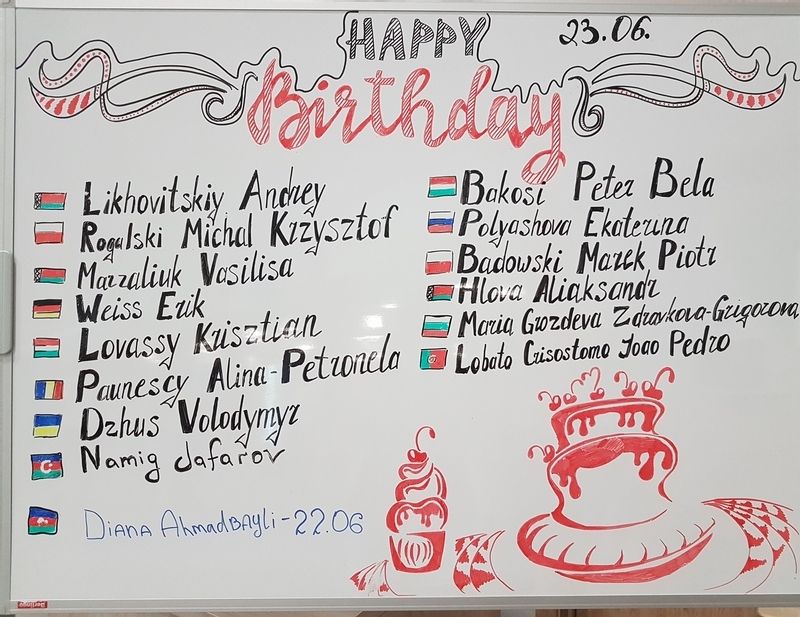 HAPPY
23.06.
Birthday
Likhovitskiy Andrey
Rogalski Michal Krzysztof
Mazzaliuk Vasilisa
Weiss Erik
Lovassy Krisztian
Paunescy Alina-Petronela
Dzhus Volodymyr
Namig Jafarov
Diana AhmadBAyli-22.06
Bakosi Peter Bela
Polyashova Ekaterina
Badowski Marek Piotr
Hlova Aliaksandr
Maria Grozdeva Zdravkova-Grigorova
Lobato Crisostomo Joao Pedro
Berlingo